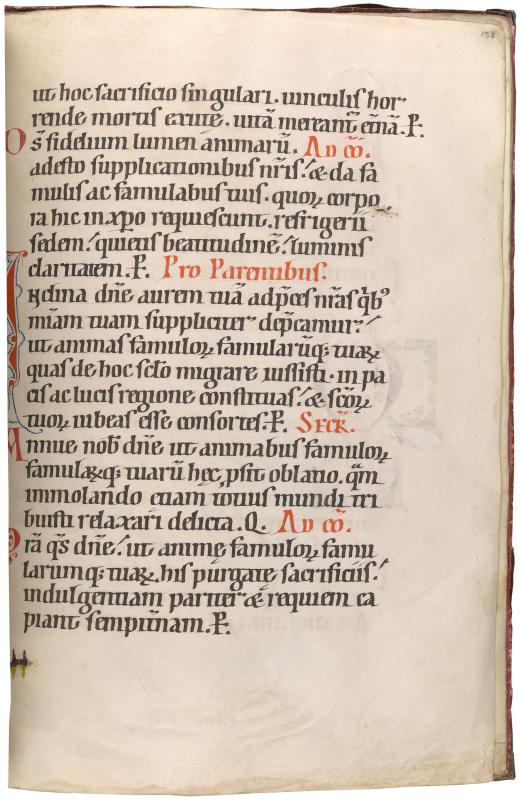 157
ut hoc sacrificio singulari. uinculis hor
rende mortis exute. uitā mereant̄ et̄nā. P̄.
Dс̄ fidelium lumen animarū. Ad c̄o.
adesto supplicationibus nr̄is. & da fa
mulis ac famulabus tuis. quoꝝ corpo
ra hic in xp̄o requiescunt. refrigerii
sedem. quietis beatitudinē. luminis
claritatem. P̄. Pro Parentibus.
Inclina dn̄e aurem tuā ad p̄ces nr̄as q̄b᷒
mīam tuam suppliciter dep̄camur.
ut animas famuloꝝ famularūq; tuaꝝ
quas de hoc sc̄lo migrare iussisti. in pa
cis ac lucis regione constituas. & sc̄oꝝ
tuoꝝ iubeas esse consortes. P̄. Secr̄.
Annue nob̄ dn̄e ut animabus famuloꝝ
famulaꝝq; tuarū hęc psit oblatio. quā
immolando etiam totius mundi tri
buisti relaxari delicta. Q. Ad c̄o.
Prā q̄s dn̄e. ut animę famuloꝝ famu
larumq; tuaꝝ. his purgatę sacrificiis.
indulgentiam pariter & requiem ca
piant sempit̄nam. P̄.